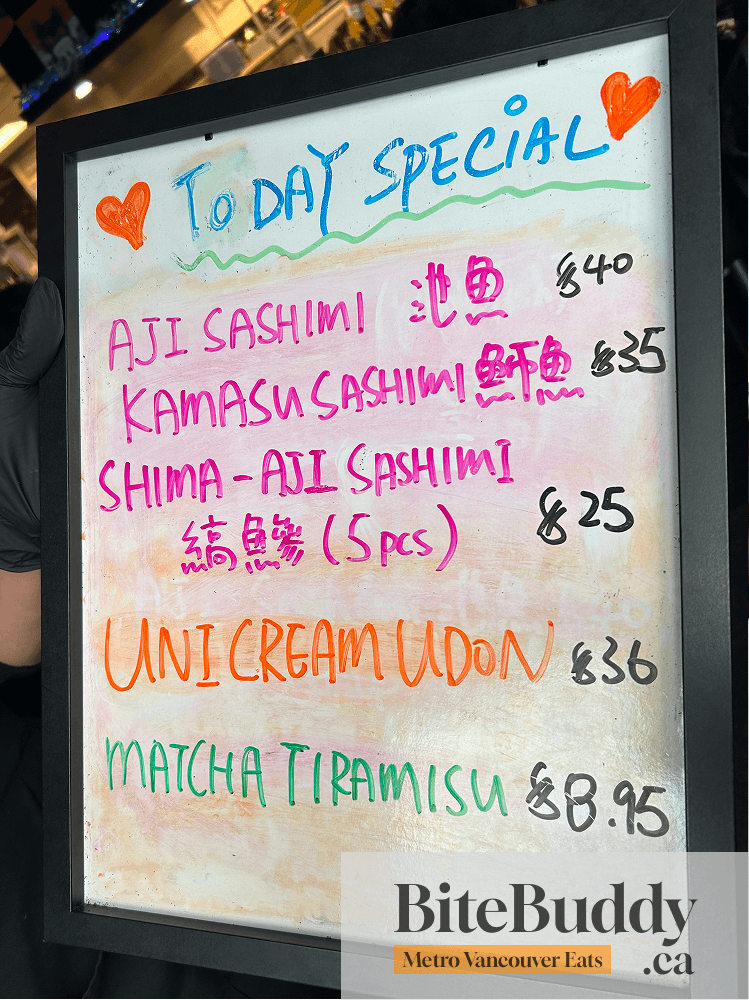 TODAY SPECIAL
AJI SASHIMI 池魚 $40
KAMASU SASHIMI $35
SHIMA-AJI SASHIMI
縞鰺 (5pcs) $25
UNI CREAM UDON $36
MATCHA TIRAMISU $8.95
BiteBuddy
Metro Vancouver Eats .ca